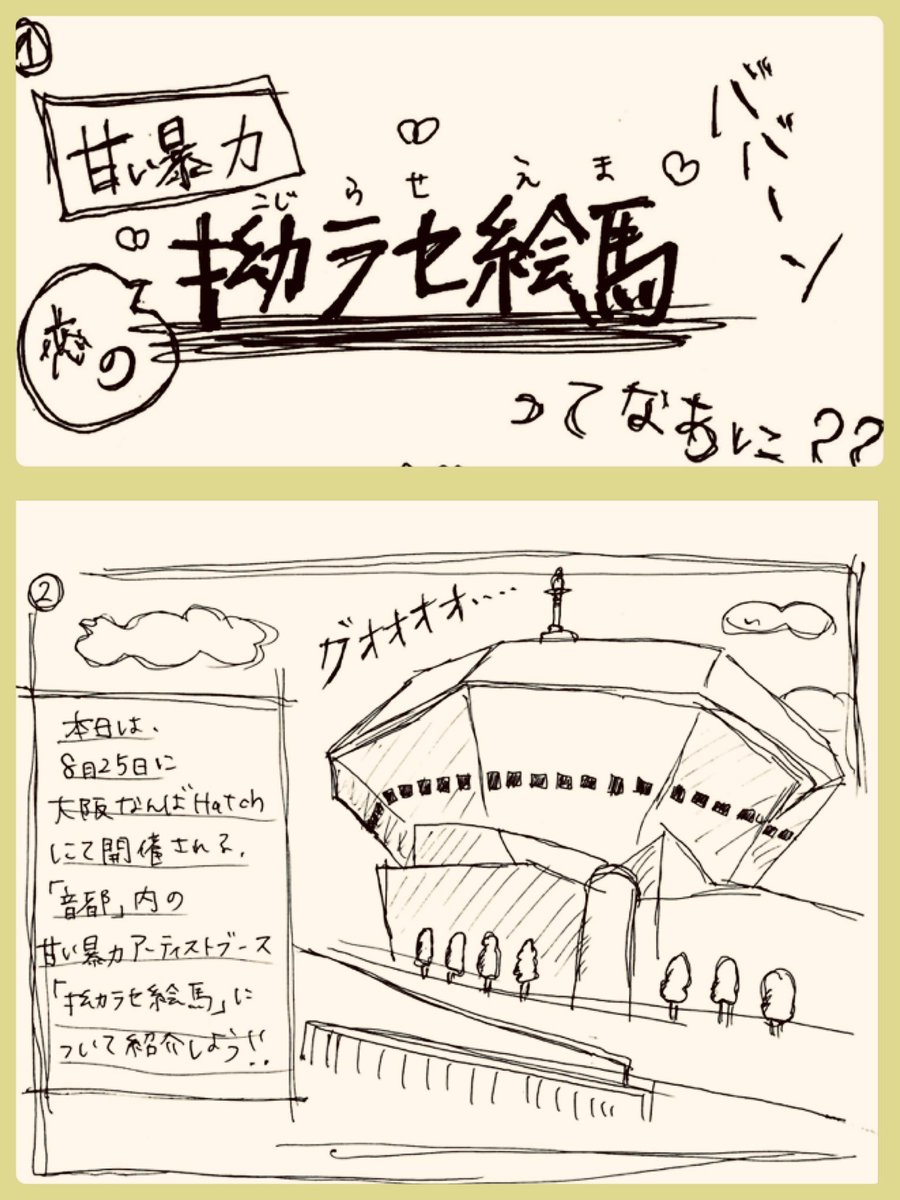 ①
甘い暴力
ババーン
こじらせえま
拗ラセ絵馬
の
ってなあに??
②
グオオオオ....
本日は、
8月25日に
大阪なんばHatch
にて開催される、
「音都」内の
甘い暴力アーティストブース
「拗ラセ絵馬」に
ついて紹介しよう!!